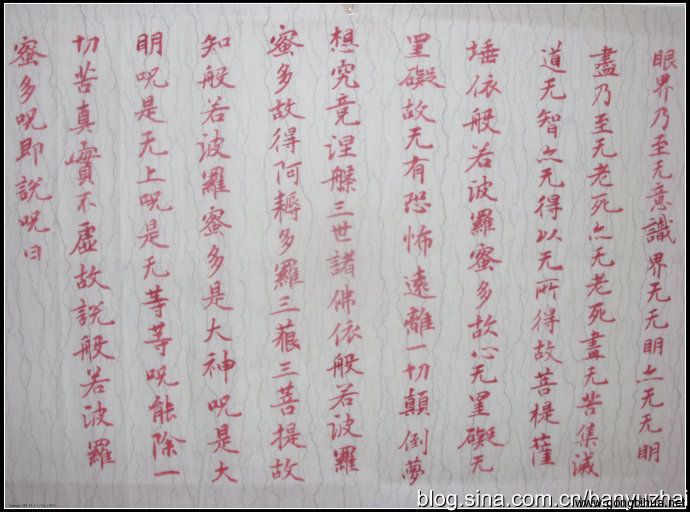 眼界乃至无意識界无无明亦无无明
盡乃至无老死亦无老死盡无苦集滅
道无智亦无得以无所得故菩提薩
埵依般若波羅蜜多故心无罣礙无
罣礙故无有恐怖遠離一切顛倒夢
想究竟涅槃三世諸佛依般若波羅
蜜多故得阿耨多羅三藐三菩提故
知般若波羅蜜多是大神呪是大
明呪是无上呪是无等等呪能除一
切苦真實不虛故說般若波羅
蜜多呪即說呪曰
blog.sina.com.cn/banyuzhai
www.gongbihua.net